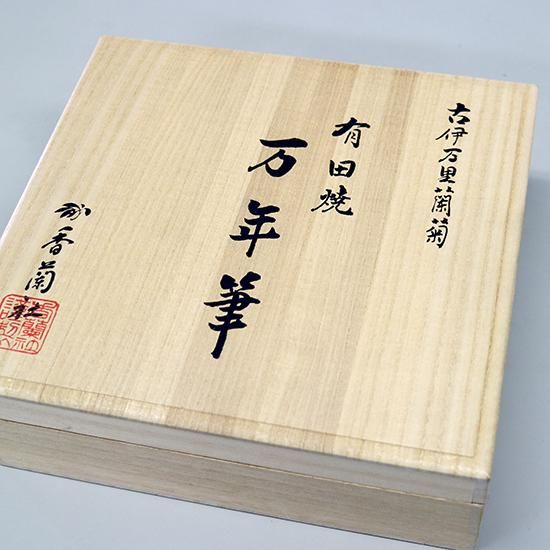 古伊万里蘭菊
有田焼
万年筆
香蘭社